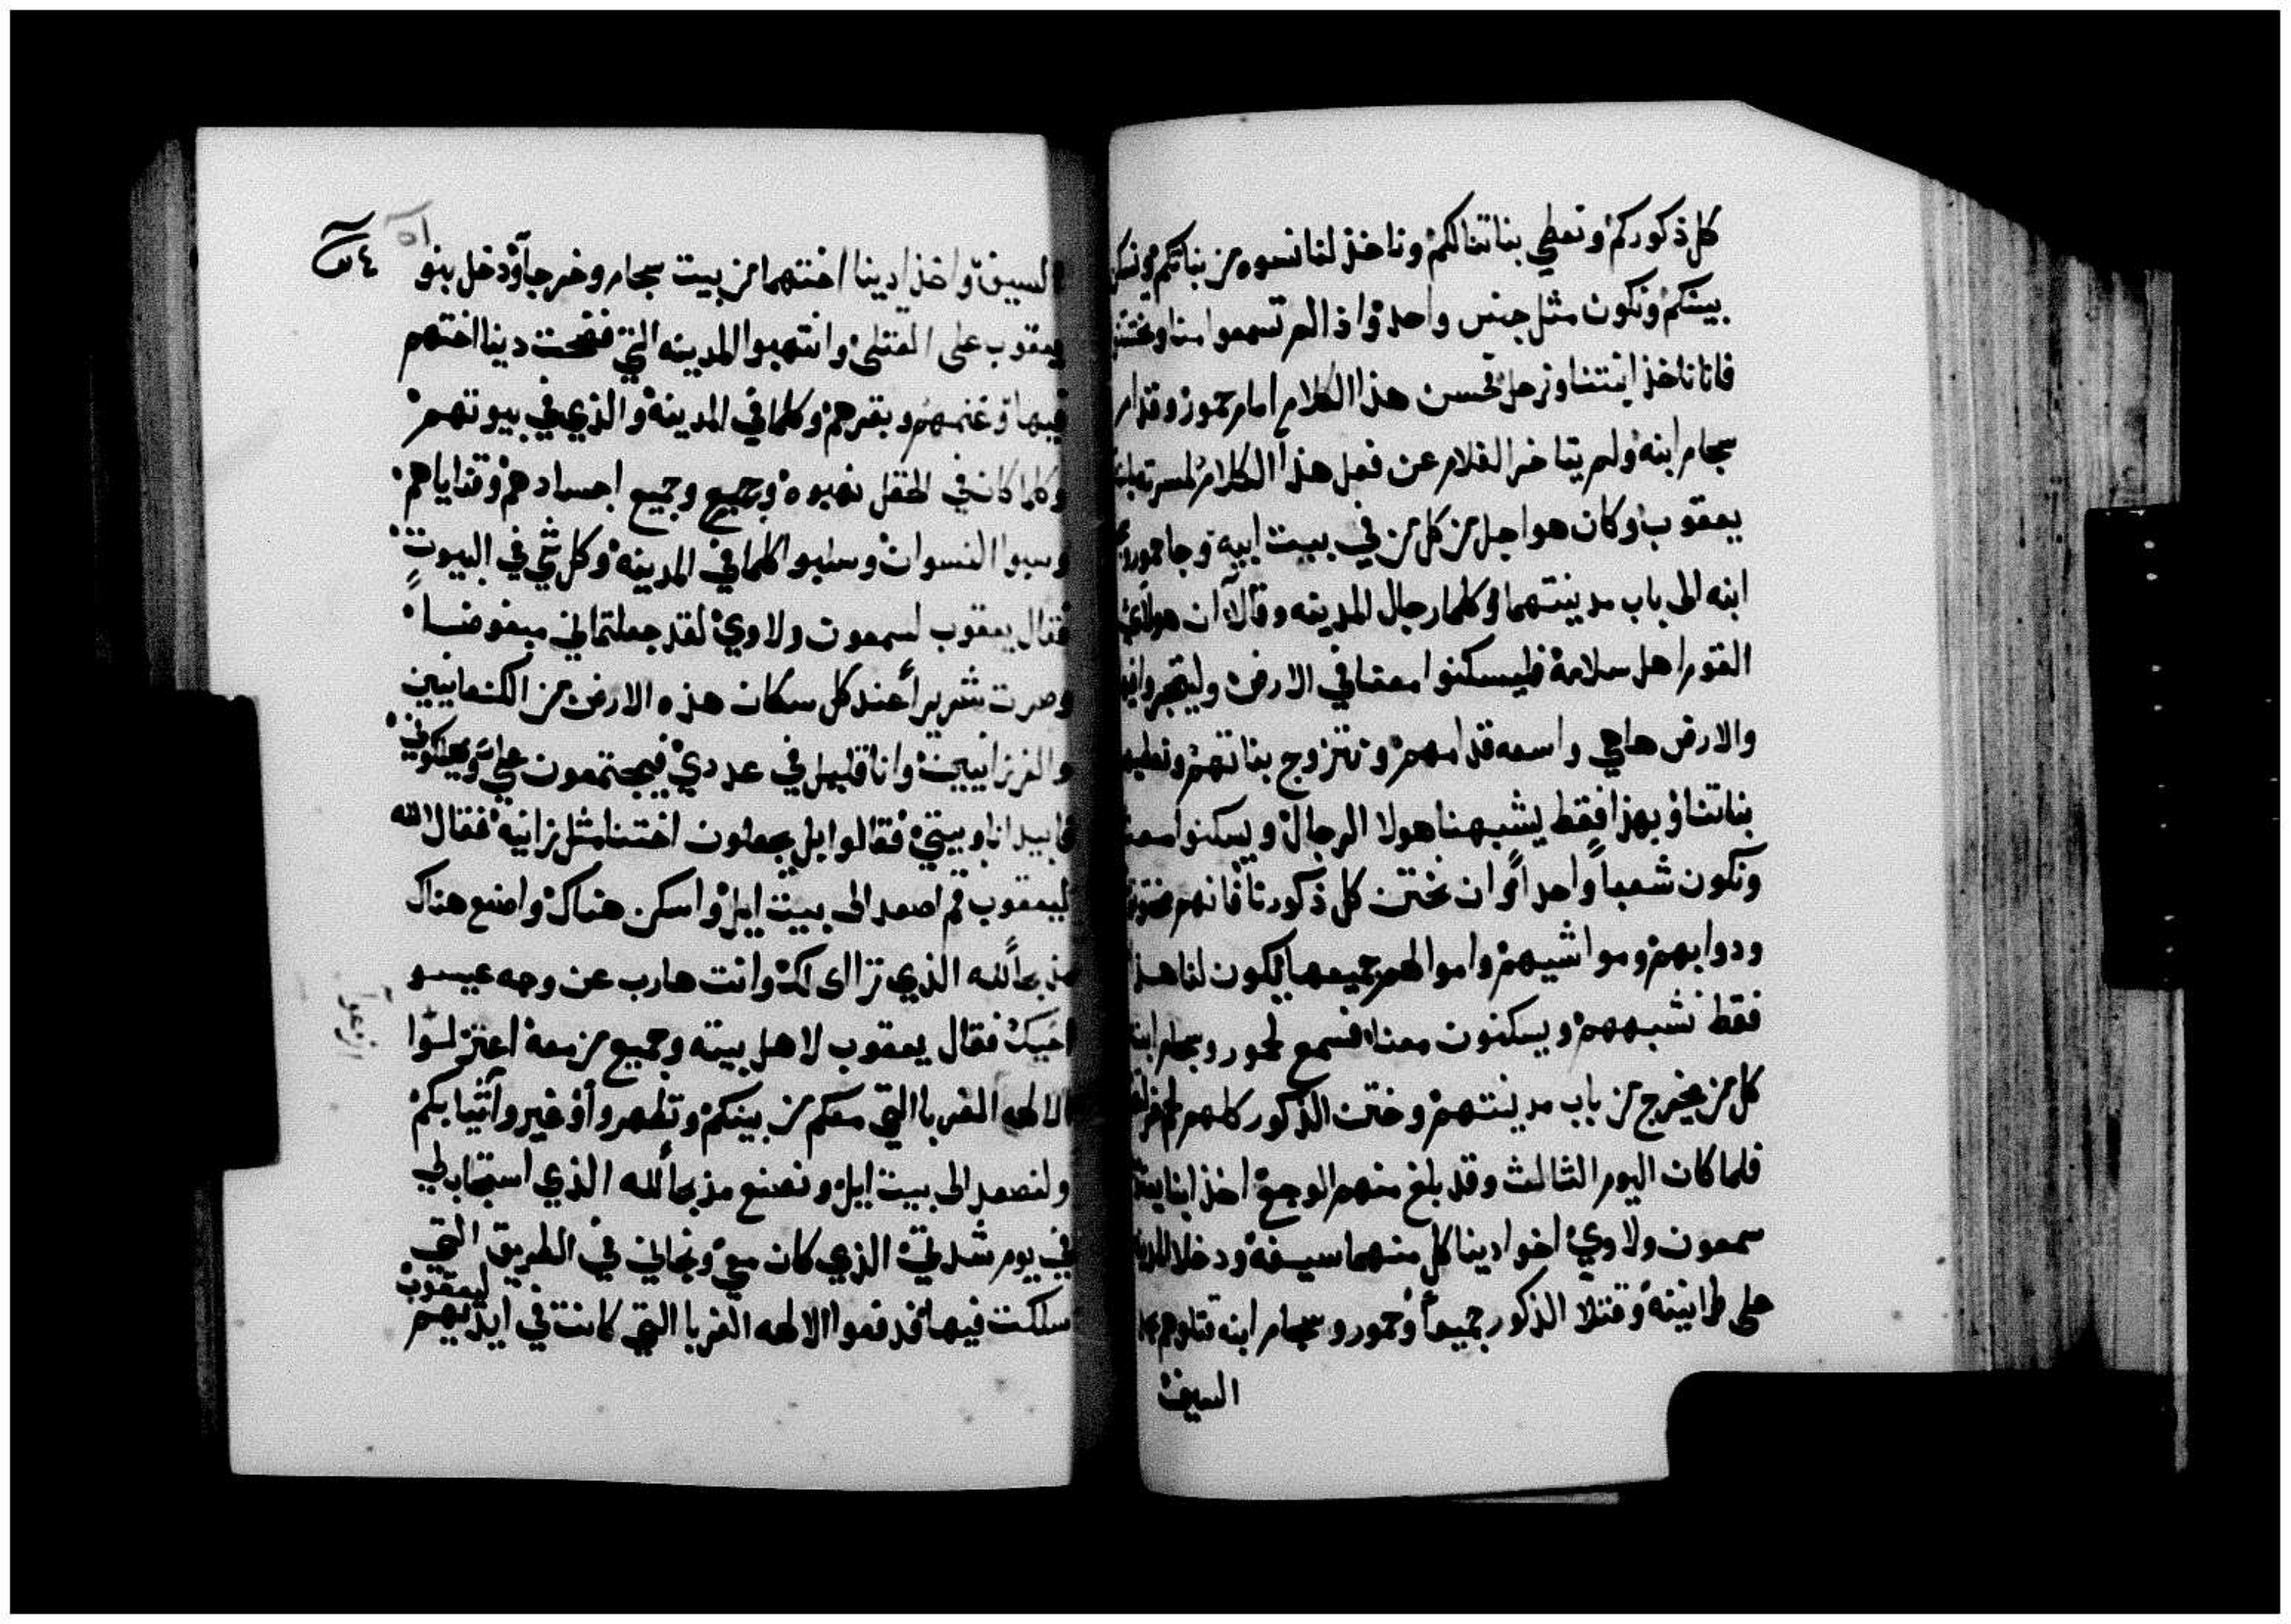 كل ذكوركم ونعطي بناتنا لكم وناخذ لنا نسوه من بناتكم
بينكم ونكون مثل جنس واحد واذا لم تسمعوا منا
فاننا ناخذ ابنتنا ونرحل فحسن هذا الكلام امام حمور وقدام
سجام ابنه ولم يتاخر الغلام عن فعل هذا الكلام
يعقوب وكان هو اجل من كل من في بيت ابيه وجا حمور
ابنه الى باب مدينتهما وكلما رجال المدينه وقالا ان هولاي
القوم اهل سلامة فليسكنوا معنا في الارض وليتجروا فيها
والارض هاهي واسعه قدامهم ونتزوج بناتهم ونعطيهم
بناتنا وبهذا فقط يشبهنا هولا الرجال ويسكنوا معنا
ونكون شعباً واحداً وان نختتن كل ذكورنا فانهم
ودوابهم ومواشيهم واموالهم جميعها يكون لنا هذا
فقط نشبههم ويسكنون معنا فسمع لحمور وسجام ابنه
كل من يخرج من باب مدينتهم وختن الذكور كلهم
فلما كان اليوم الثالث وقد بلغ منهم الوجع اخذ ابنا
سمعون ولاوي اخوا دينا كل منهما سيفه ودخلا المدينه
على طمانينة وقتلا الذكور جميعاً وحمور وسجام ابنه قتلوهم
السيف
٥١
السيف واخذا دينا اختهما من بيت سجام وخرجا ودخل بنو
يعقوب على القتلى وانتهبوا المدينه التي فضحت دينا اختهم
فيها وغنمهم وبقرهم وكلما في المدينة والذي في بيوتهم
وكلما كان في الحقل نهبوه وجميع وجميع اجسادهم وقناياهم
وسبوا النسوان وسلبوا كلما في المدينه وكل شي في البيوت
فقال يعقوب لسمعون ولاوي لقد جعلتماني مبغوضاً
وصرت شريراً عند كل سكان هذه الارض من الكنعانيين
والفرزانيين وانا قليل في عددي فيجتمعون علي ويهلكوني
فابيد انا وبيتي فقالوا بل يجعلون اختنا مثل زانية فقال الله
ليعقوب قم اصعد الى بيت ايل واسكن هناك واصنع هناك
مذبحاً لله الذي تراى لك وانت هارب عن وجه عيسو
اخيك فقال يعقوب لاهل بيته وجميع من معه اعتزلوا
الالهه الغربا التي معكم من بينكم وتطهروا وغيروا ثيابكم
ولنصعد الى بيت ايل ونصنع مذبحاً لله الذي استجاب لي
في يوم شدتي الذي كان معي ونجاني في الطريق التي
سلكت فيها فدفعوا ليعقوب الالهه الغربا التي كانت في ايديهم